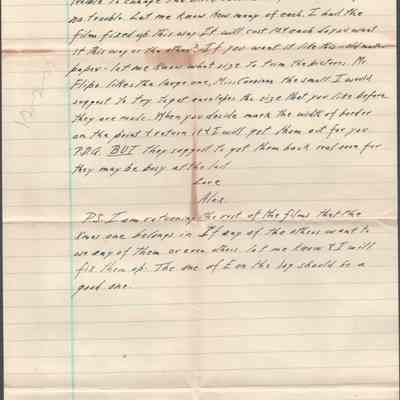 no trouble. Let me know how many of each. I had the
film fixed up this way. It will cost 10¢ each do you want
it this way or the other? If you want it like this - old master
paper - let me know what size to trim the pictures. Mr
likes the large one, Miss the small. I would
suggest to try to get envelopes the size that you like before
they are made. When you decide mark the width of border
on the print & return it & I will get them out for you
P.D.Q. BUT they suggest to get them back real soon for
they may be busy at the last
Love
Alex
P.S. I am returning the rest of the films that the
Xmas one belongs in. If any of the others want to
use any of them or even others. let me know & I will
fix them up. The one of E on the hay should be a
good one.